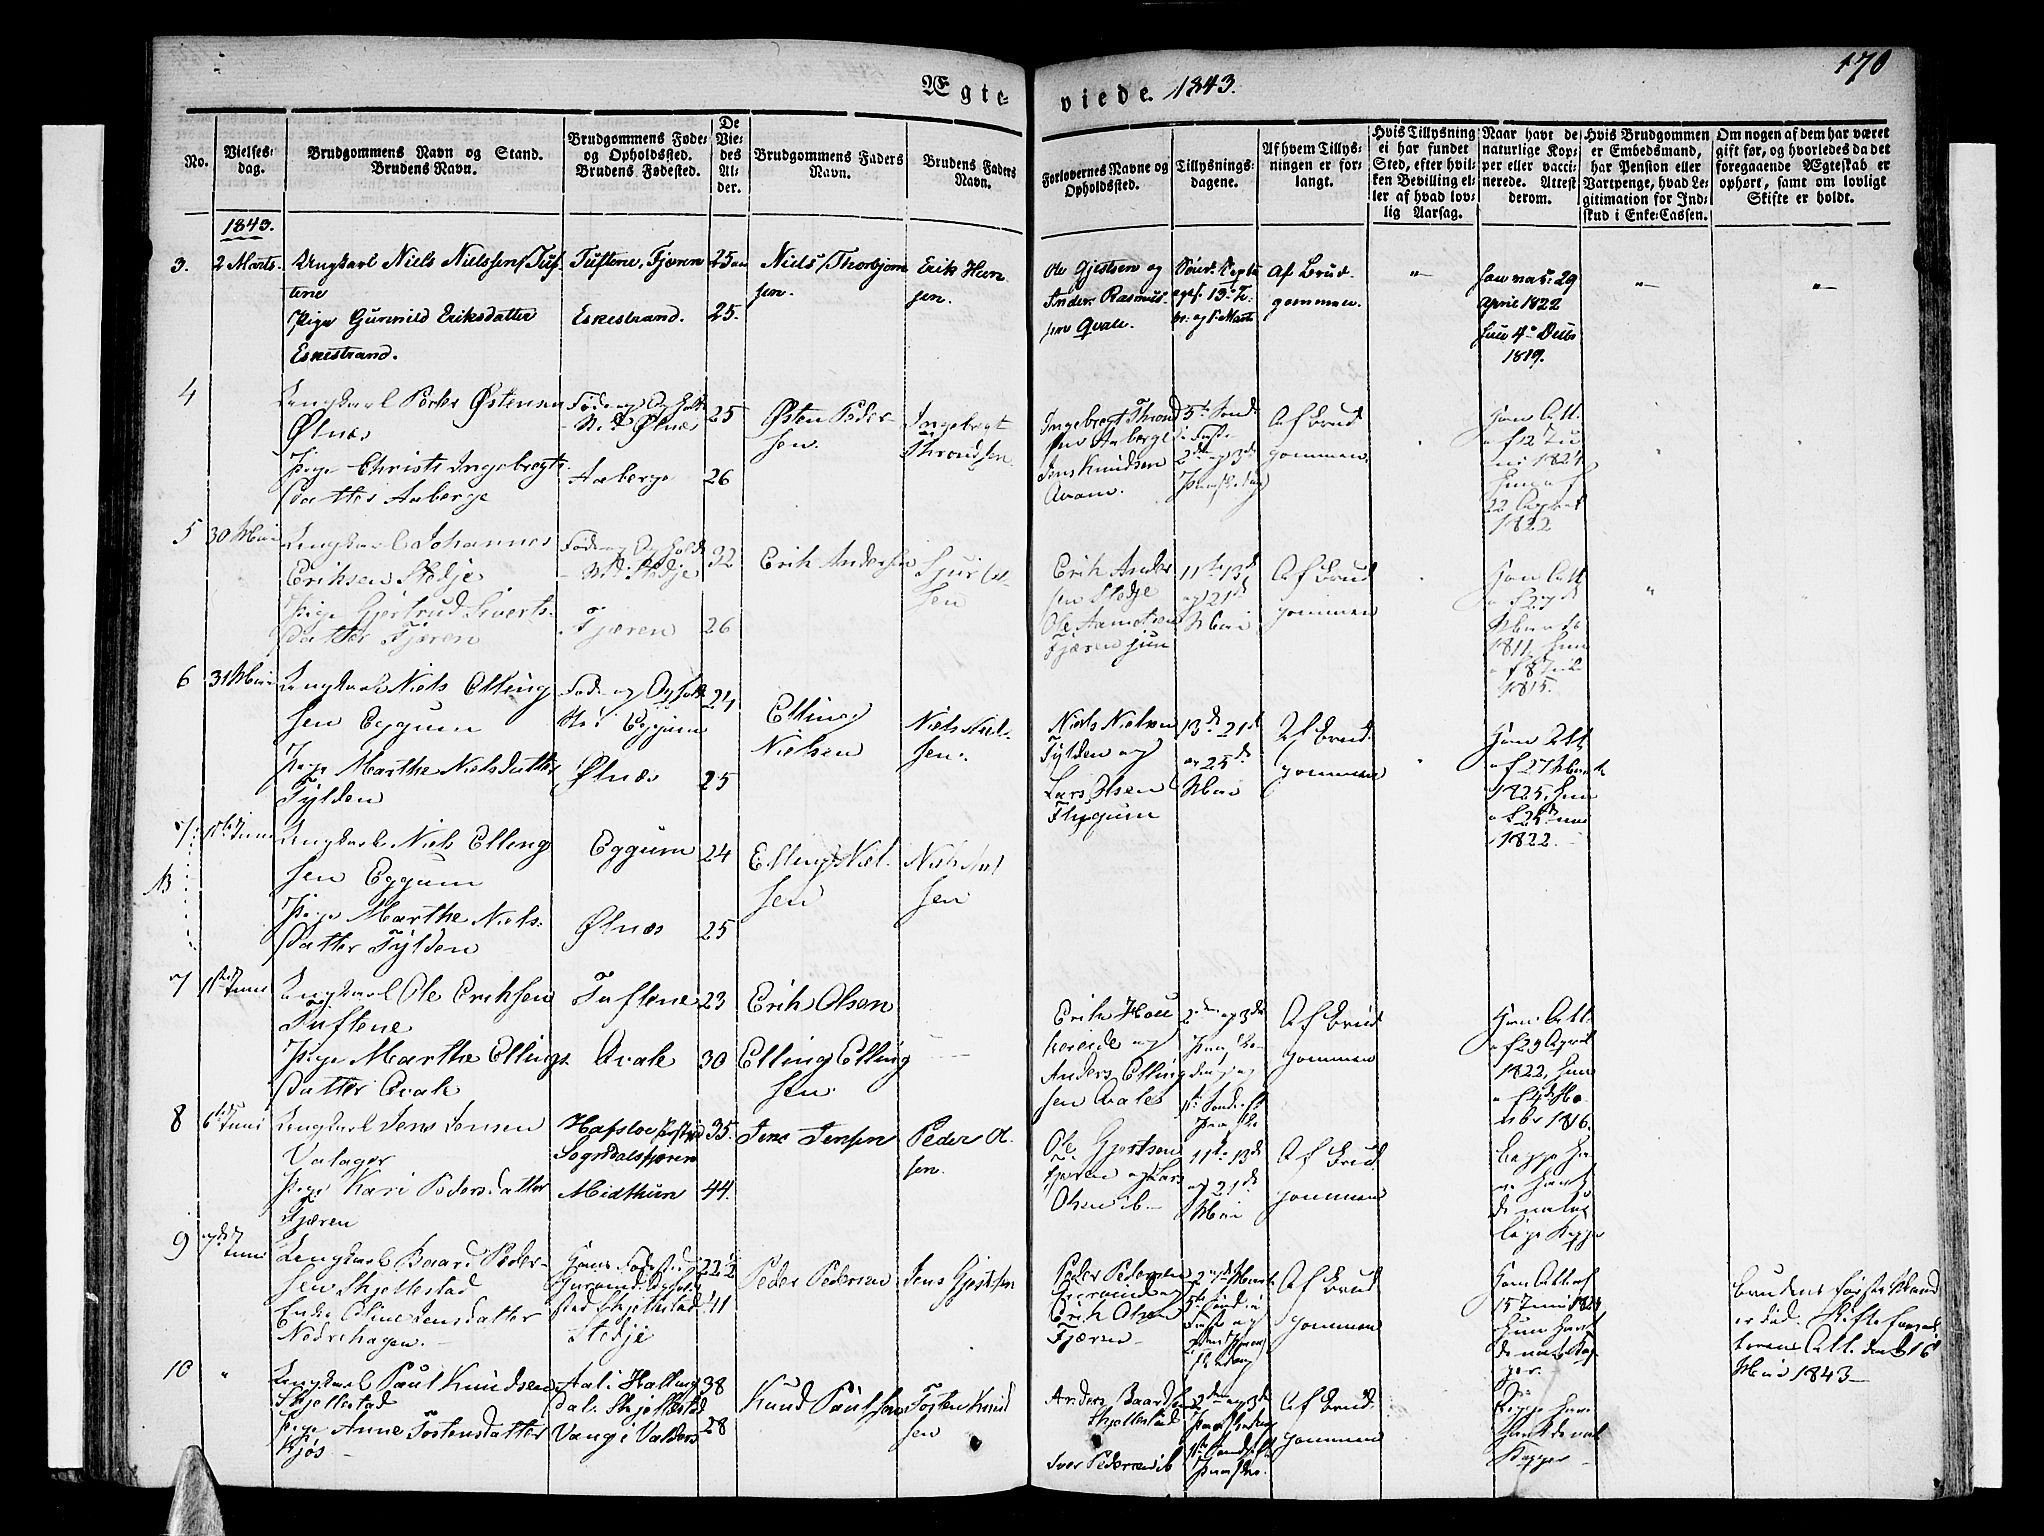 170
Ægte-
viede. 1843.
No.
Vielses-
dag.
Brudgommens Navn og Stand.
Brudens Navn.
Brudgommens Føde-
og Opholdssted.
Brudens Fødested.
De
Vie-
des
Al-
der.
Brudgommens Faders
Navn.
Brudens Faders
Navn.
Forlovernes Navne og
Opholdssted.
Tillysnings-
dagene.
Af hvem Tillys-
ningen er for-
langt.
Hvis Tillysning
ei har fundet
Sted, efter hvil-
ken Bevilling el-
ler af hvad lov-
lig Aarsag.
Naar havt de
naturlige Kop-
per eller vacci-
nerede. Attest
derom.
Hvis Brudgommen
er Embedsmand,
har Pension eller
Vartpenge, hvad Le-
gitimation for Ind-
skud i Enke-Cassen.
Om nogen af dem har været
gift før, og hvorledes da det
foregaaende Ægteskab er
ophørt, samt om lovligt
Skifte er holdt.
1843.
3.
2 Marts.
Ungkarl Niels Nielssen Tuf-
tene
Pige Gunnild Eriksdatter
Eskestrand.
Tuftene, Fjæren
Eskestrand.
25 aar
25.
Niels Thorbjørn
sen.
Erik Han
sen.
Ole Gjestsen og
Anders Rasmus-
sen Qvale.
Af Brud-
gommen.
29
April 1822
4de
1819.
4
Ungkarl Peder Østensen
Ølnæs
Pige Christi Ingebregts-
datter Aaberge
Føde og Opholds
Sted Ølnæs
Aaberge
25
26
Østen Peder-
sen.
Ingebregt
Throndsen.
Ingebregt Thrond
sen Aaberge
Jens Knudsen
Qvam.
5te Sønd.
i Faste
2den og 3die
Paaskedag
Af Brud
gommen.
Ham Att.
af 12 Ju
ni 1824
Hun af
22 April
1822
5
30 Mai
Ungkarl Johannes
Eriksen Stedje
Pige Gjertrud Siverts-
datter Fjæren
Føde og Opholds
Sted Stedje
Fjæren
32
26
Erik Andersen
Sjur
sen
Erik Ander
sen Stedje
Ole
Fjæren jun
11te 13de
og 21de
Mai
Af Brud
gommen
Ham Att
af 27de
1811, Hun
1815.
6
31 Mai
Ungkarl Niels Elling
sen Eggum
Pige Marthe Nielsdatter
Fylden
Føde og Opholds
Sted Eggum
Ølnæs
24
25
Elling
Nielsen
Niels Niel-
sen.
Niels Nielsen
Fylden og
Lars Olsen
Flugum
13de 21de
og 25de
Mai
Af Brud
gommen
Ham Att
af 27 Marts
1825, Hun
1822.
7.
1ste Juni
Ungkarl Niels Elling
sen Eggum
Pige Marthe Niels-
datter Fylden
Eggum
Ølnæs
24
25
Elling Niel
sen
Niels Niel
sen
7
1ste Juni
Ungkarl Ole Eriksen
Tuftene
Pige Marthe Ellings
datter Qvale
Tuftene
Qvale
23
30
Erik Olsen
Elling Elling
sen.
Erik Hou
kereide og
Anders Elling
sen Qvale
2den og 3die
Af Brud
gommen
Ham Att.
af 29 April
1822, Hun
1816.
8
6te Juni
Ungkarl Jens Jensen
Valager
Pige Kari Pedersdatter
Fjæren
Hafsloe
Sogndalsfjæren
Midthun
35.
44.
Jens Jensen
Peder Ol
sen.
Ole Gjestsen
Fjæren og Lars
Olsen ib
11te 13de
og 21de
Mai
Af Brud
gommen
Begge ha
ve havt
de natur
lige Kopper
9
7de Juni
Ungkarl Baard Peder-
sen Skjellestad
Enke Eline Jensdatter
Nedrehagen.
Hans Fødested
Skjellestad
Stedje
22 1/2
41
Peder Pedersen
Jens Gjestsen
Peder Pedersen
Erik Olsen
Fjæren
Af Brud
gommen
Ham Att af
15 Juni 1824,
Hun havt
de nat. Kop
per.
Brudens første Mand
er død. Skifte
Att. den 16
Mai 1843
10
Ungkarl Paul Knudsen
Skjellestad
Pige Anne Tostensdatter
Kjøs
Aal i Halling
dal. Skjellestad
Vang i Valders
38
28
Knud Paulsen
Tosten Knud
sen
Anders Baardsen
Skjellestad
Iver Pedersen ib
2den og 3die
Af Brud
gommen
Begge have
havt de nat.
Kopper